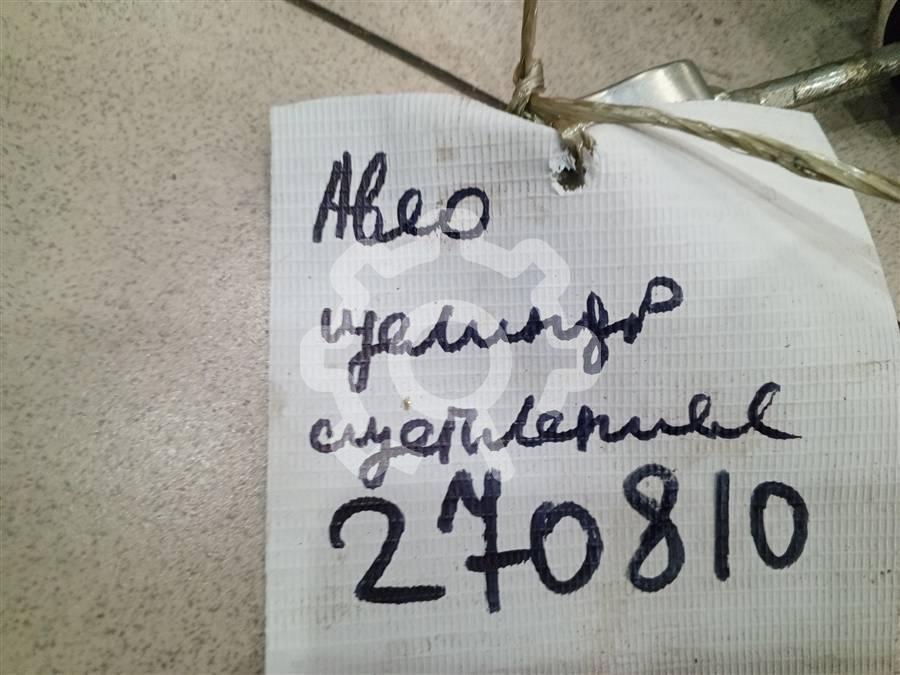 Авео
целиндр
сцепление
270810